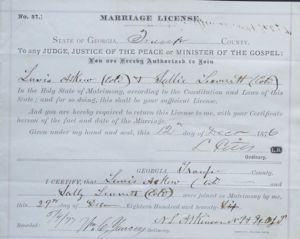 No. 37.
MARRIAGE LICENSE.
STATE OF GEORGIA, Troup COUNTY.
To any JUDGE, JUSTICE OF THE PEACE or MINISTER OF THE GOSPEL:
You are Hereby Authorized to Join
Lewis Askew (Col) & Sallie (Col)
In the Holy State of Matrimony, according to the Constitution and Laws of this
State; and for so doing, this shall be your sufficient License.
And you are hereby required to return this License to me, with your Certificate
hereon of the fact and date of the Marriage.
Given under my hand and seal, this 12th day of Decr 1876
L.S.
Ordinary.
GEORGIA, Troup County.
I CERTIFY, that Lewis Askew (Col) and
Sally (Col) were joined in Matrimony by me, this
29th day of Decr Eighteen Hundred and Seventy Six.
Recorded